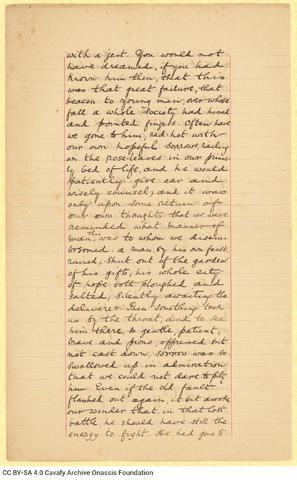 with a jest. You would not
have dreamed, if you had
known him then, that this
was that great failure, that
beacon to young men, over whose
fall a whole society had hissed
and pointed fingers. Often have
we gone to him, red-hot with
our own hopeful sorrows, railing
on the rose-leaves in our prince-
ly bed of life, and he would
patiently give ear and
wisely counsel; and it was
only upon some return of
our own thoughts that we were
reminded what manner of
man this was to whom we disem-
bosomed: a man, by his own fault
ruined; shut out of the garden
of his gifts; his whole city
of hope both ploughed and
salted; silently awaiting the
deliverer. Then something took
us by the throat; and to see
him there, so gentle, patient,
brave and pious, oppressed but
not cast down, sorrow was so
swallowed up in admiration
that we could not dare to pity
him. Even if the old fault
flashed out again, it but awoke
our wonder that, in that lost
battle, he should have still the
energy to fight. He had gone to
CC BY-SA 4.0 Cavafy Archive Onassis Foundation